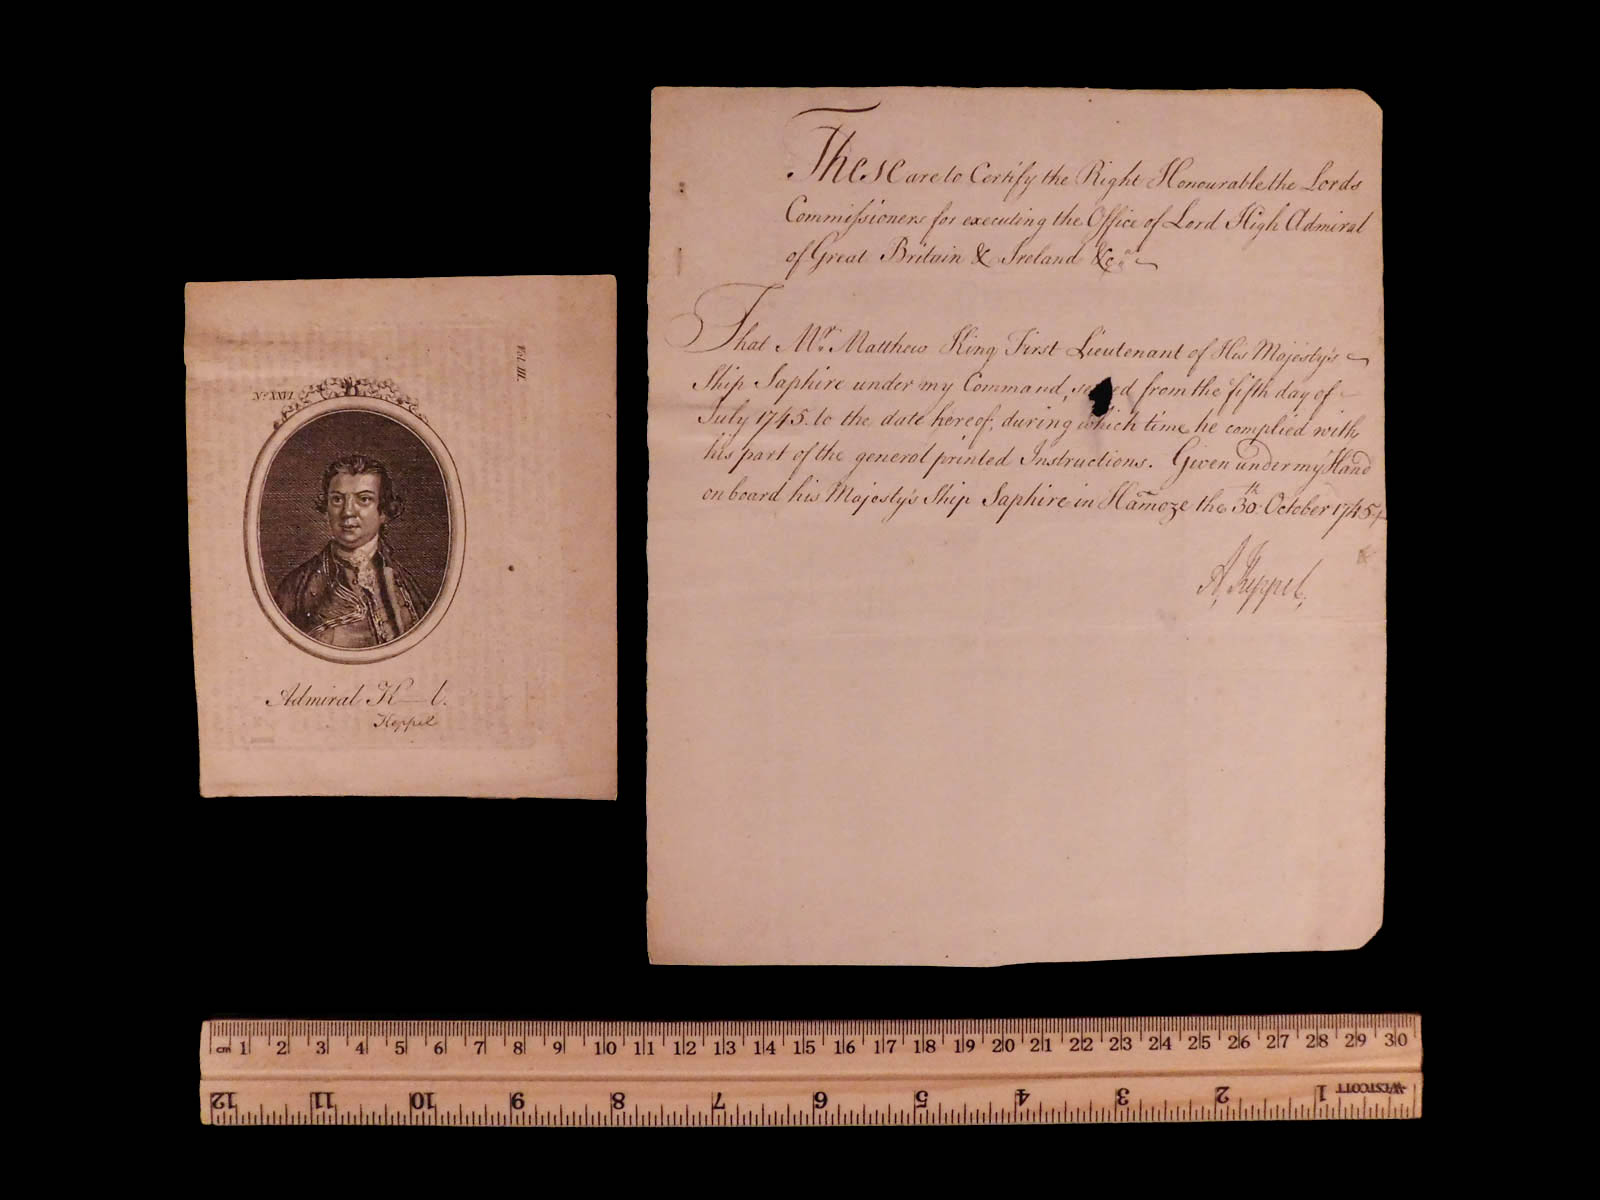 Vol. III.
No. XXVI
Admiral K—l.
Keppel
These are to Certify the Right Honourable the Lords
Commissioners for executing the Office of Lord High Admiral
of Great Britain & Ireland &c.a
That Mr. Matthew King First Lieutenant of His Majesty's
Ship Saphire under my Command, served from the fifth day of
July 1745. to the date hereof, during which time he complied with
his part of the general printed Instructions. Given under my Hand
on board his Majesty's Ship Saphire in Hamoze the 30th October 1745
A. Keppel.
cm 1 2 3 4 5 6 7 8 9 10 11 12 13 14 15 16 17 18 19 20 21 22 23 24 25 26 27 28 29 30
12 11 10 9 8 7 6 5 4 3 2 1 WESTCOTT